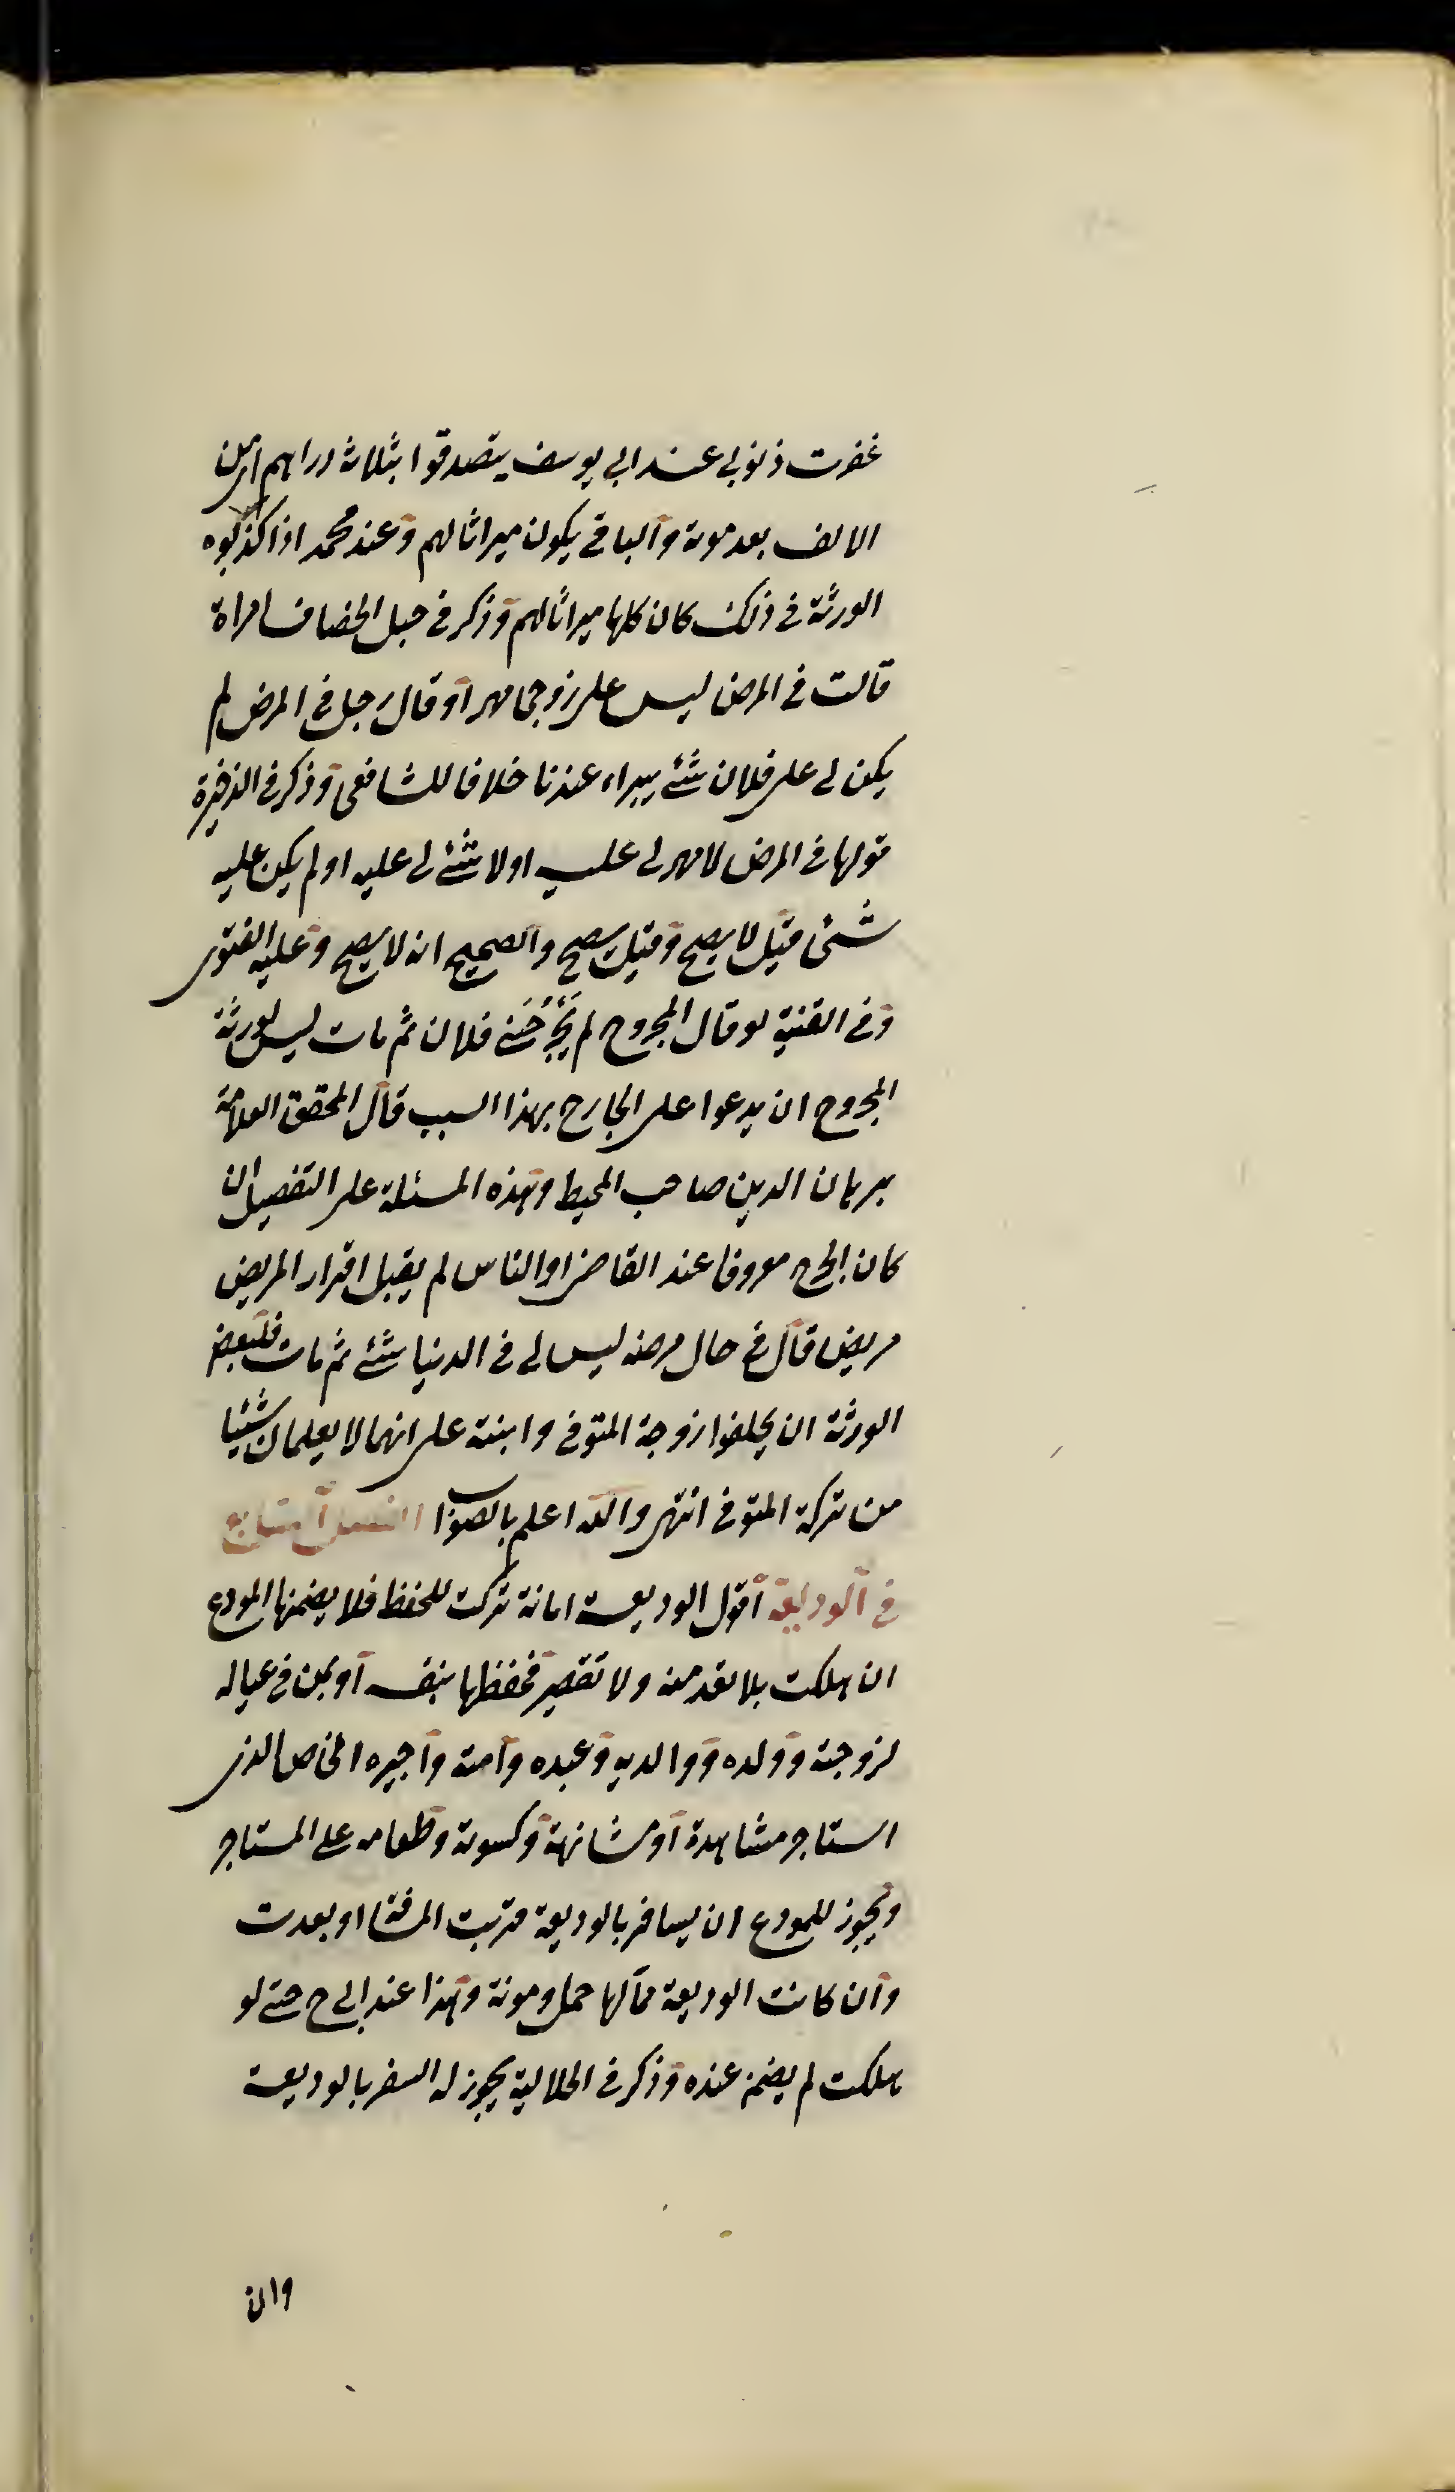 غفرت ذنوبى عند ابى يوسف يتصدقوا بثلاثة دراهم من
الالف بعد موته والباقى يكون ميراثا لهم وعند محمد اذا كذبوه
الورثة فى ذلك كان كلها ميراثا لهم وذكر فى حيل الخصاف امراة
قالت فى المرض ليس على زوجى مهر او قال رجل فى المرض لم
يكن لى على فلان شئ يبراء عندنا خلافا للشافعى وذكر فى الذخيرة
قولها فى المرض لا مهر لى عليه او لا شئ لى عليه او لم يكن عليه
شئ قيل لا يصح وقيل يصح والصحيح انه لا يصح وعليه الفتوى
وفى القنية لو قال المجروح لم يَجْرَحْنى فلان ثم مات ليس لورثة
المجروح ان يدعوا على الجارح بهذا السبب قال المحقق العلامة
برهان الدين صاحب المحيط وهذه المسئلة على التفصيل ان
كان الجرح معروفا عند القاضى او الناس لم يقبل اقرار المريض
مريض قال فى حال مرضه ليس لى فى الدنيا شئ ثم مات فلبعض
الورثة ان يحلفوا زوجة المتوفى وابنته على انهما لا يعلمان شيئا
من تركة المتوفى انتهى والله اعلم بالصواب الفصل السابع
فى الوديعة اقول الوديعة امانة تركت للحفظ فلا يضمنها المودع
ان هلكت بلا تعد منه ولا تقصير فحفظها بنفسه او بمن فى عياله
لزوجته وولده ووالديه وعبده وامته واجيره الخاص الذى
استاجر مشاهدة او مشانهة وكسوته وطعامه على المستاجر
ويجوز للمودع ان يسافر بالوديعة قربت المسافة او بعدت
وان كانت الوديعة مما لها حمل ومونة وهذا عند ابى ح حتى لو
هلكت لم يضمن عنده وذكر فى الجلالية يجوز له السفر بالوديعة
وان